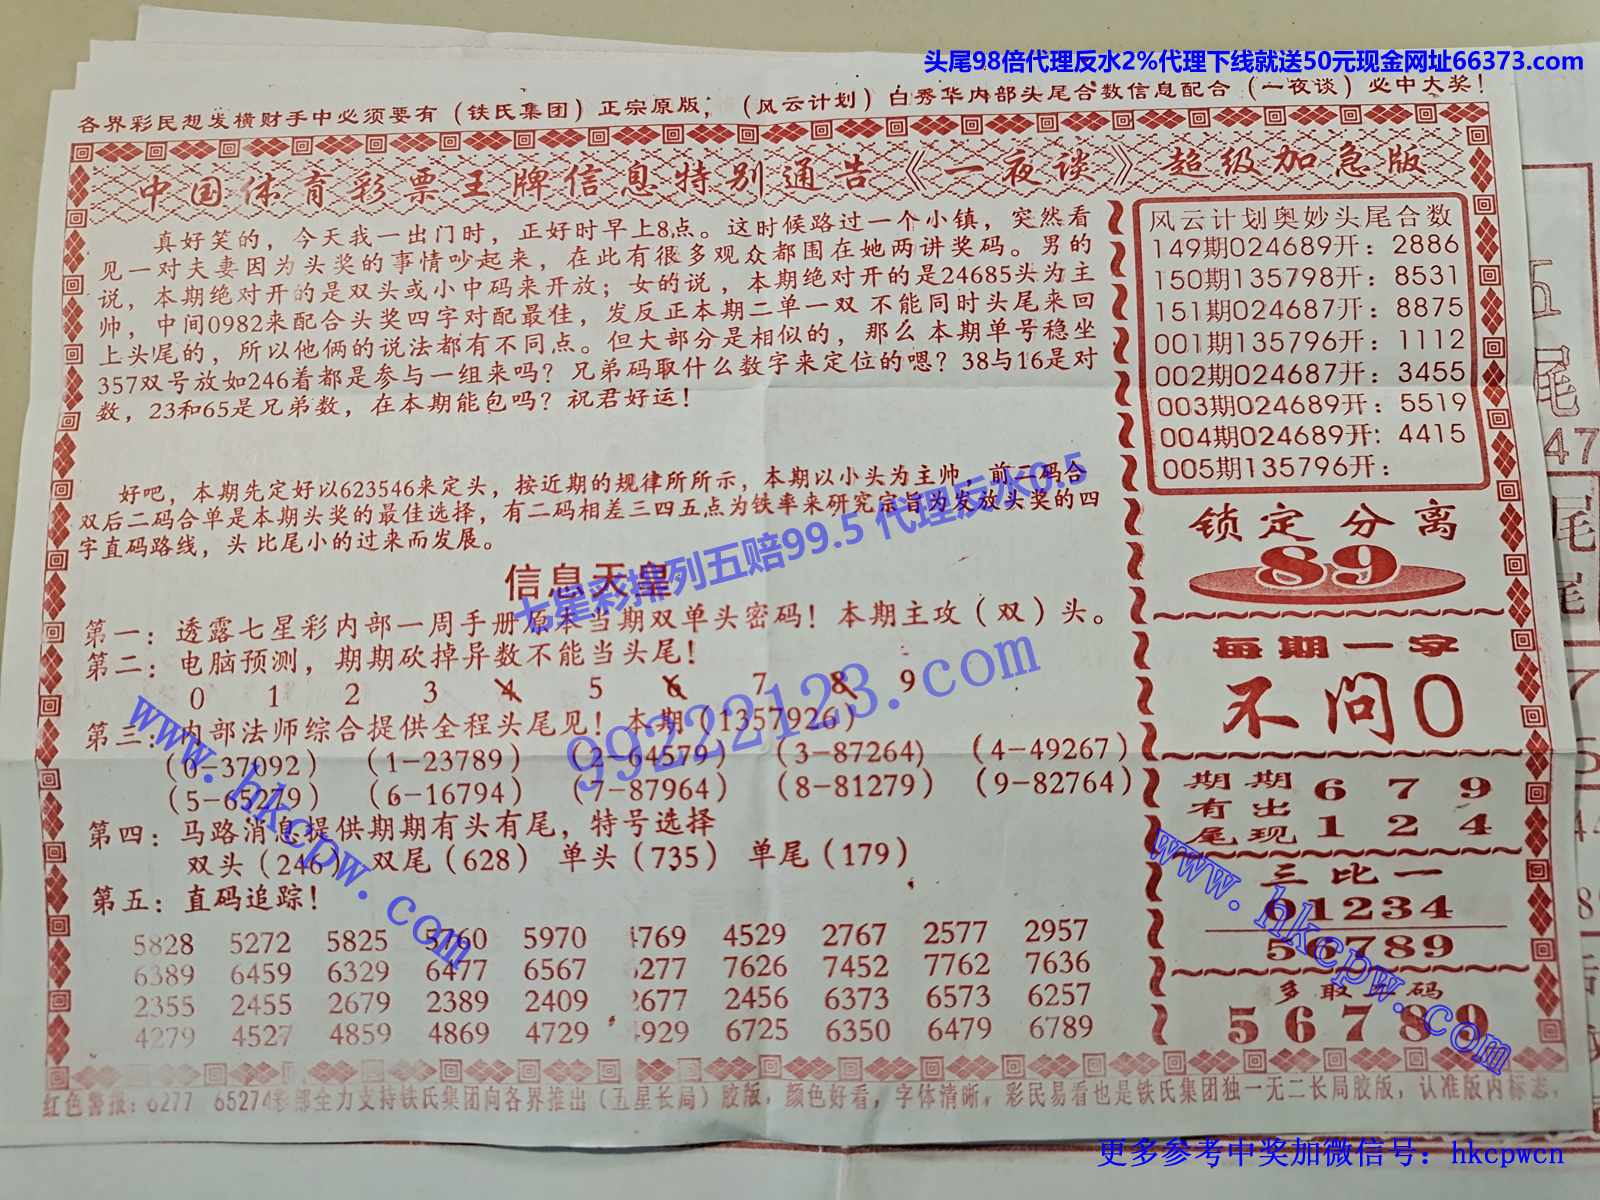 头尾98倍代理反水2%代理下线就送50元现金网址66373.com
各界彩民想发横财手中必须要有（铁氏集团）正宗原版；（风云计划）白秀华内部头尾合数信息配合（一夜谈）必中大奖！
中国体育彩票王牌信息特别通告《一夜谈》超级加急版
真好笑的，今天我一出门时，正好时早上8点。这时候路过一个小镇，突然看
见一对夫妻因为头奖的事情吵起来，在此有很多观众都围在她两讲奖码。男的
说，本期绝对开的是双头或小中码来开放；女的说，本期绝对开的是24685头为主
帅，中间0982来配合头奖四字对配最佳，发反正本期二单一双 不能同时头尾来回
上头尾的，所以他俩的说法都有不同点。但大部分是相似的，那么本期单号稳坐
357双号放如246着都是参与一组来吗？兄弟码取什么数字来定位的嗯？38与16是对
数，23和65是兄弟数，在本期能包吗？祝君好运！
好吧，本期先定好以623546来定头，按近期的规律所所示，本期以小头为主帅，前二码合
双后二码合单是本期头奖的最佳选择，有二码相差三四五点为铁率来研究宗旨为发放头奖的四
字直码路线，头比尾小的过来而发展。
七星彩排列五赔99.5 代理反水0.5
信息天皇
第一：透露七星彩内部一周手册原本当期双单头密码！本期主攻（双）头。
第二：电脑预测，期期砍掉异数不能当头尾！
0 1 2 3 4 5 6 7 8 9
第三：内部法师综合提供全程头尾见！本期（1357926）
（0-37092）（1-23789）（2-64579）（3-87264）（4-49267）
（5-65279）（6-16794）（7-87964）（8-81279）（9-82764）
第四：马路消息提供期期有头有尾，特号选择
双头（246） 双尾（628） 单头（735） 单尾（179）
第五：直码追踪！
5828 5272 5825 5760 5970 4769 4529 2767 2577 2957
6389 6459 6329 6477 6567 6277 7626 7452 7762 7636
2355 2455 2679 2389 2409 2677 2456 6373 6573 6257
4279 4527 4859 4869 4729 4929 6725 6350 6479 6789
红色警报：6277 65274彩部全力支持铁氏集团向各界推出（五星长局）胶版，颜色好看，字体清晰，彩民易看也是铁氏集团独一无二长局胶版，认准版内标志，
风云计划奥妙头尾合数
149期024689开：2886
150期135798开：8531
151期024687开：8875
001期135796开：1112
002期024687开：3455
003期024689开：5519
004期024689开：4415
005期135796开：
锁定分离
89
每期一字
不问0
期期有出尾现
6 7 9
1 2 4
三比一
01234
56789
多取年码
5 6 7 8 9
www.hkcpw.com
99222123.com
www.hkcpw.com
五
尾
47
尾
尾
更多参考中奖加微信号：hkcpwcn